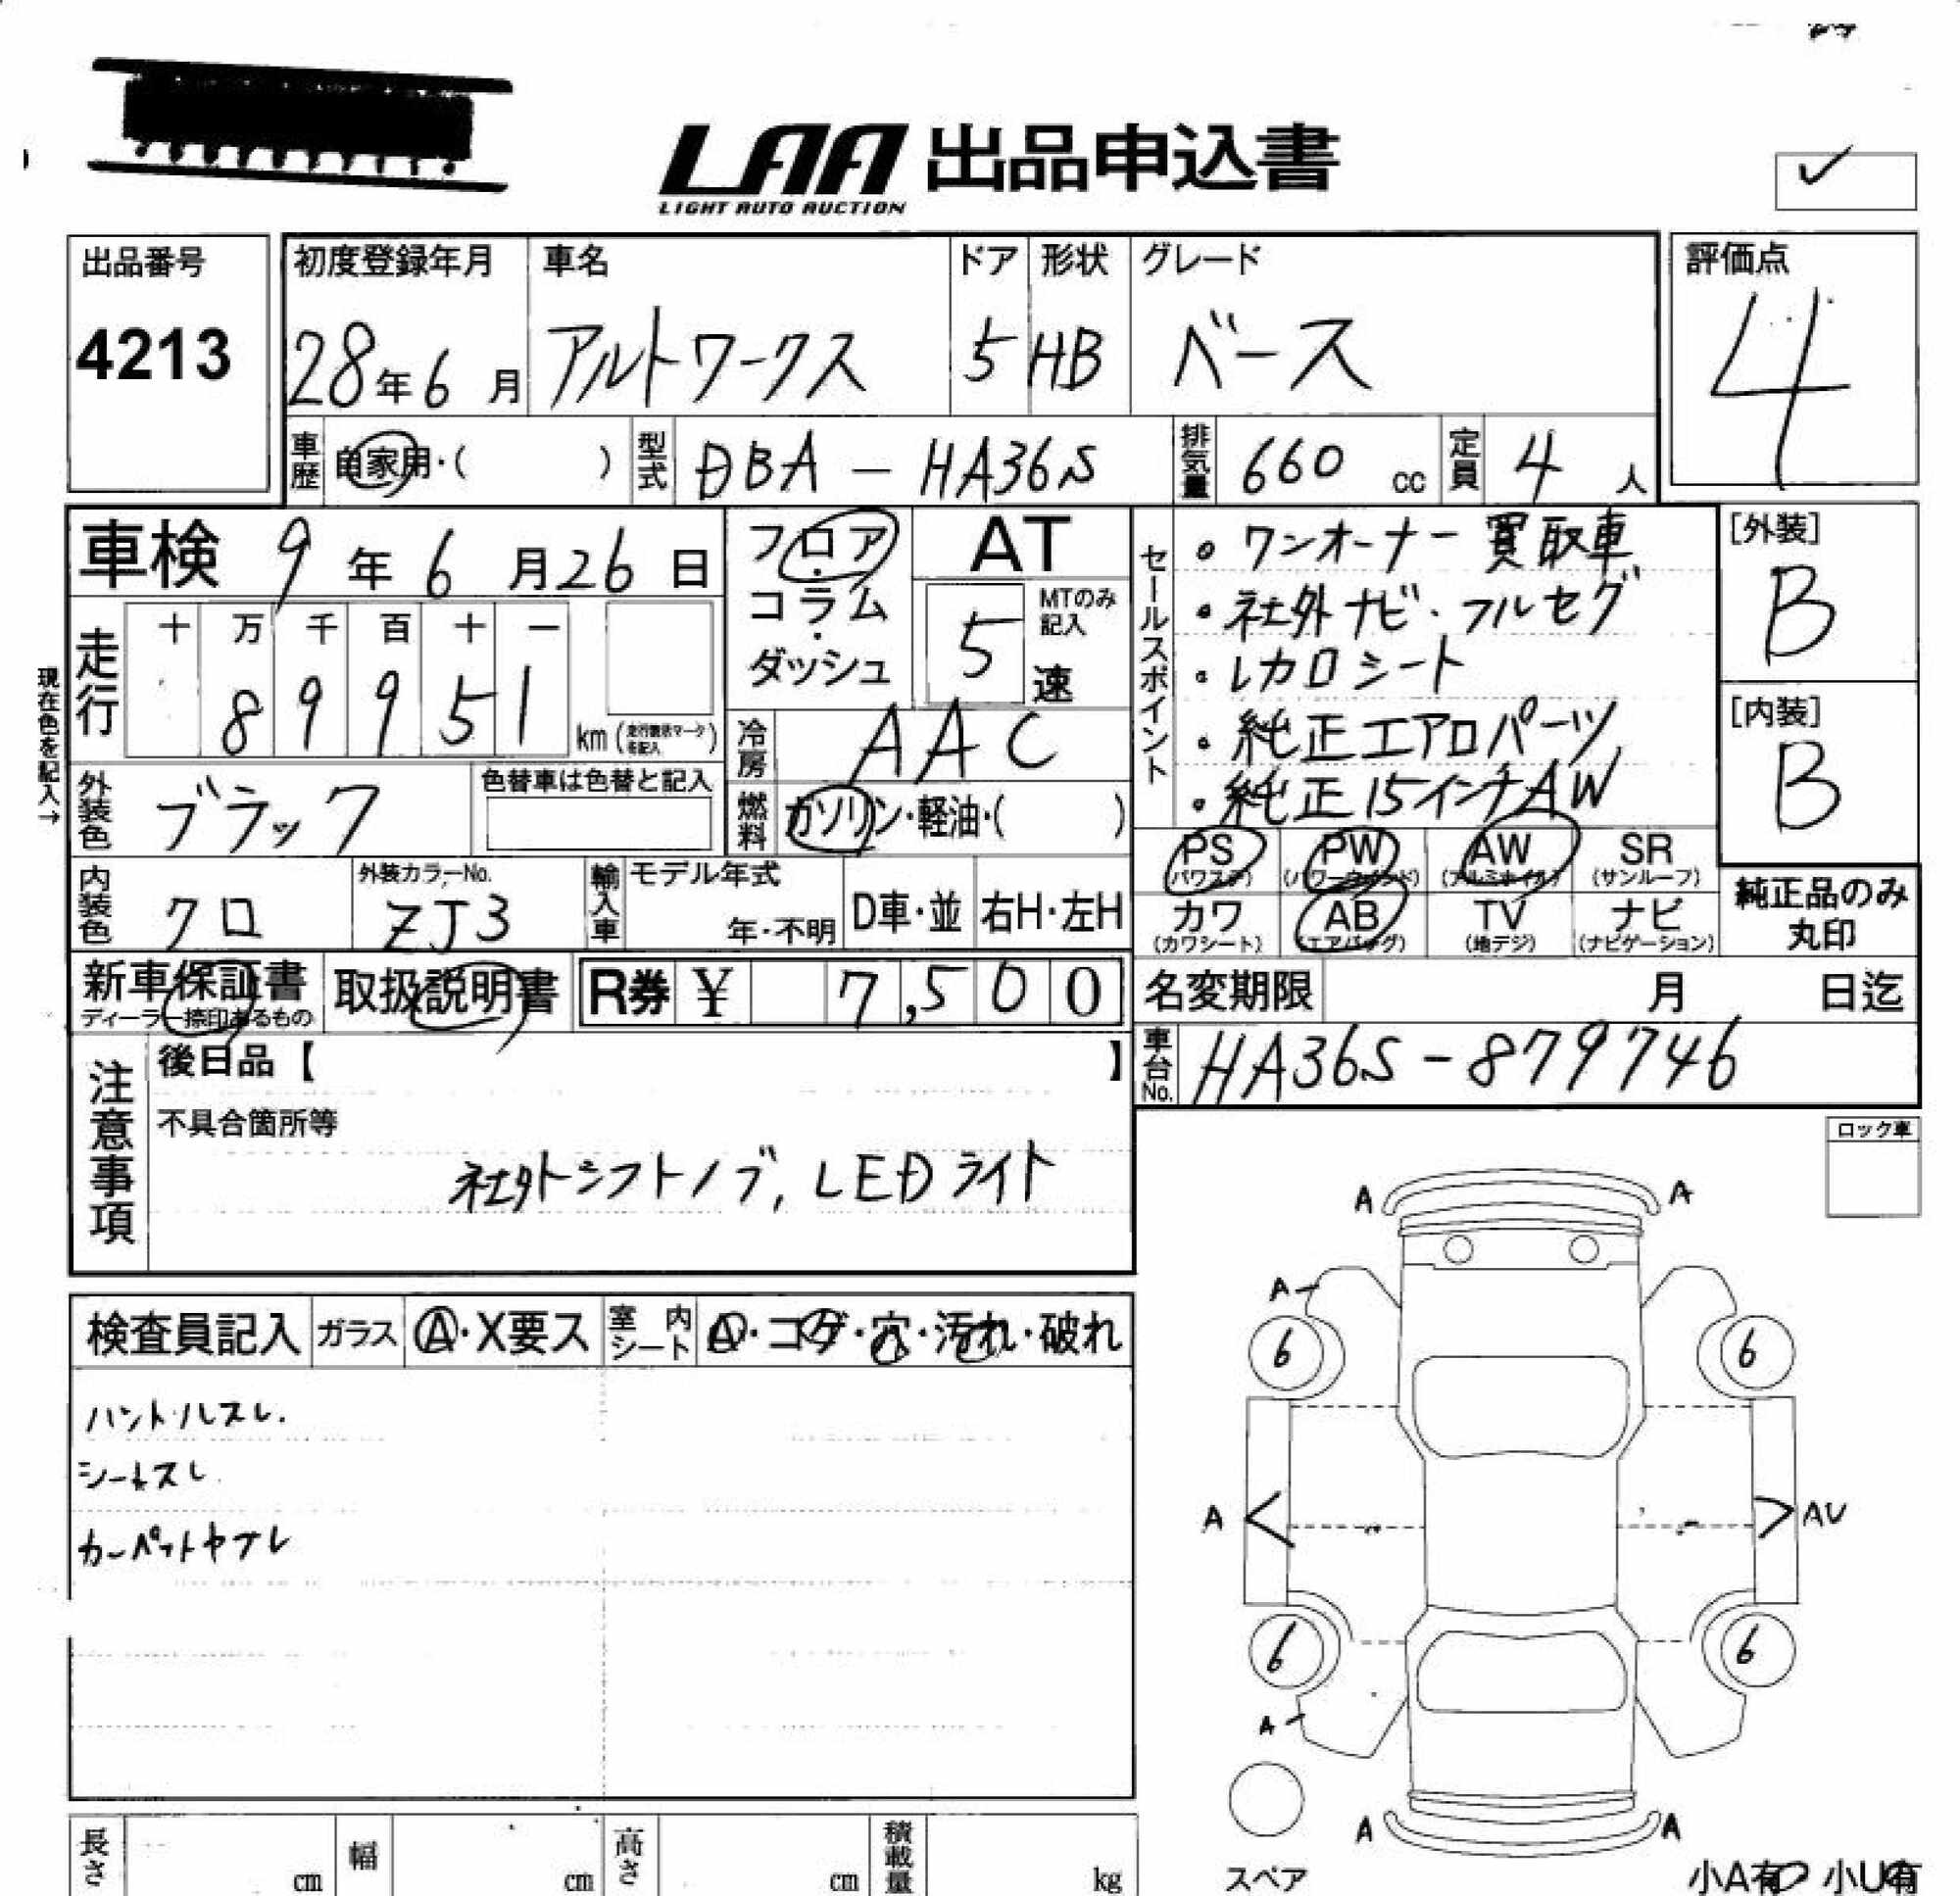 LAA 出品申込書
LIGHT AUTO AUCTION
出品番号
4213
初度登録年月
28年6月
車名
アルトワークス
ドア
5
形状
HB
グレード
ベース
評価点
4
車歴 自家用・( )
型式 DBA - HA36S
排気量 660 cc
定員 4 人
車検 9年6月26日
走行 十 万 千 百 十 一
8 9 9 5 1 km
現在色を記入→
フロア・コラム・ダッシュ
AT
5速
MTのみ記入
冷房 AAC
燃料 ガソリン・軽油・( )
外装色 ブラック
色替車は色替と記入
内装色 クロ
外装カラーNo.
ZJ3
輸入車
モデル年式
年・不明
D車・並
右H・左H
セールスポイント
・ワンオーナー 買取車
・社外ナビ・フルセグ
・レカロシート
・純正エアロパーツ
・純正15インチAW
[外装]
B
[内装]
B
PS (パワステ)
PW (パワーウィンド)
AW (アルミホイル)
SR (サンルーフ)
カワ (カワシート)
AB (エアバッグ)
TV (地デジ)
ナビ (ナビゲーション)
純正品のみ丸印
新車保証書
ディーラー捺印あるもの
取扱説明書
R券 ¥ 7,500
名変期限 月 日迄
車台No. HA36S-879746
注意事項
後日品【 】
不具合箇所等
社外シフトノブ, LEDライト
ロック車
検査員記入
ガラス A・X要ス
室内シート A・コゲ・穴・汚れ・破れ
ハンドルスレ.
シートスレ
カーペットヤブレ
A A
A
6 6
A AU
6 6
A
A A
スペア
小A有 小U有
長さ cm
幅 cm
高さ cm
積載量 kg